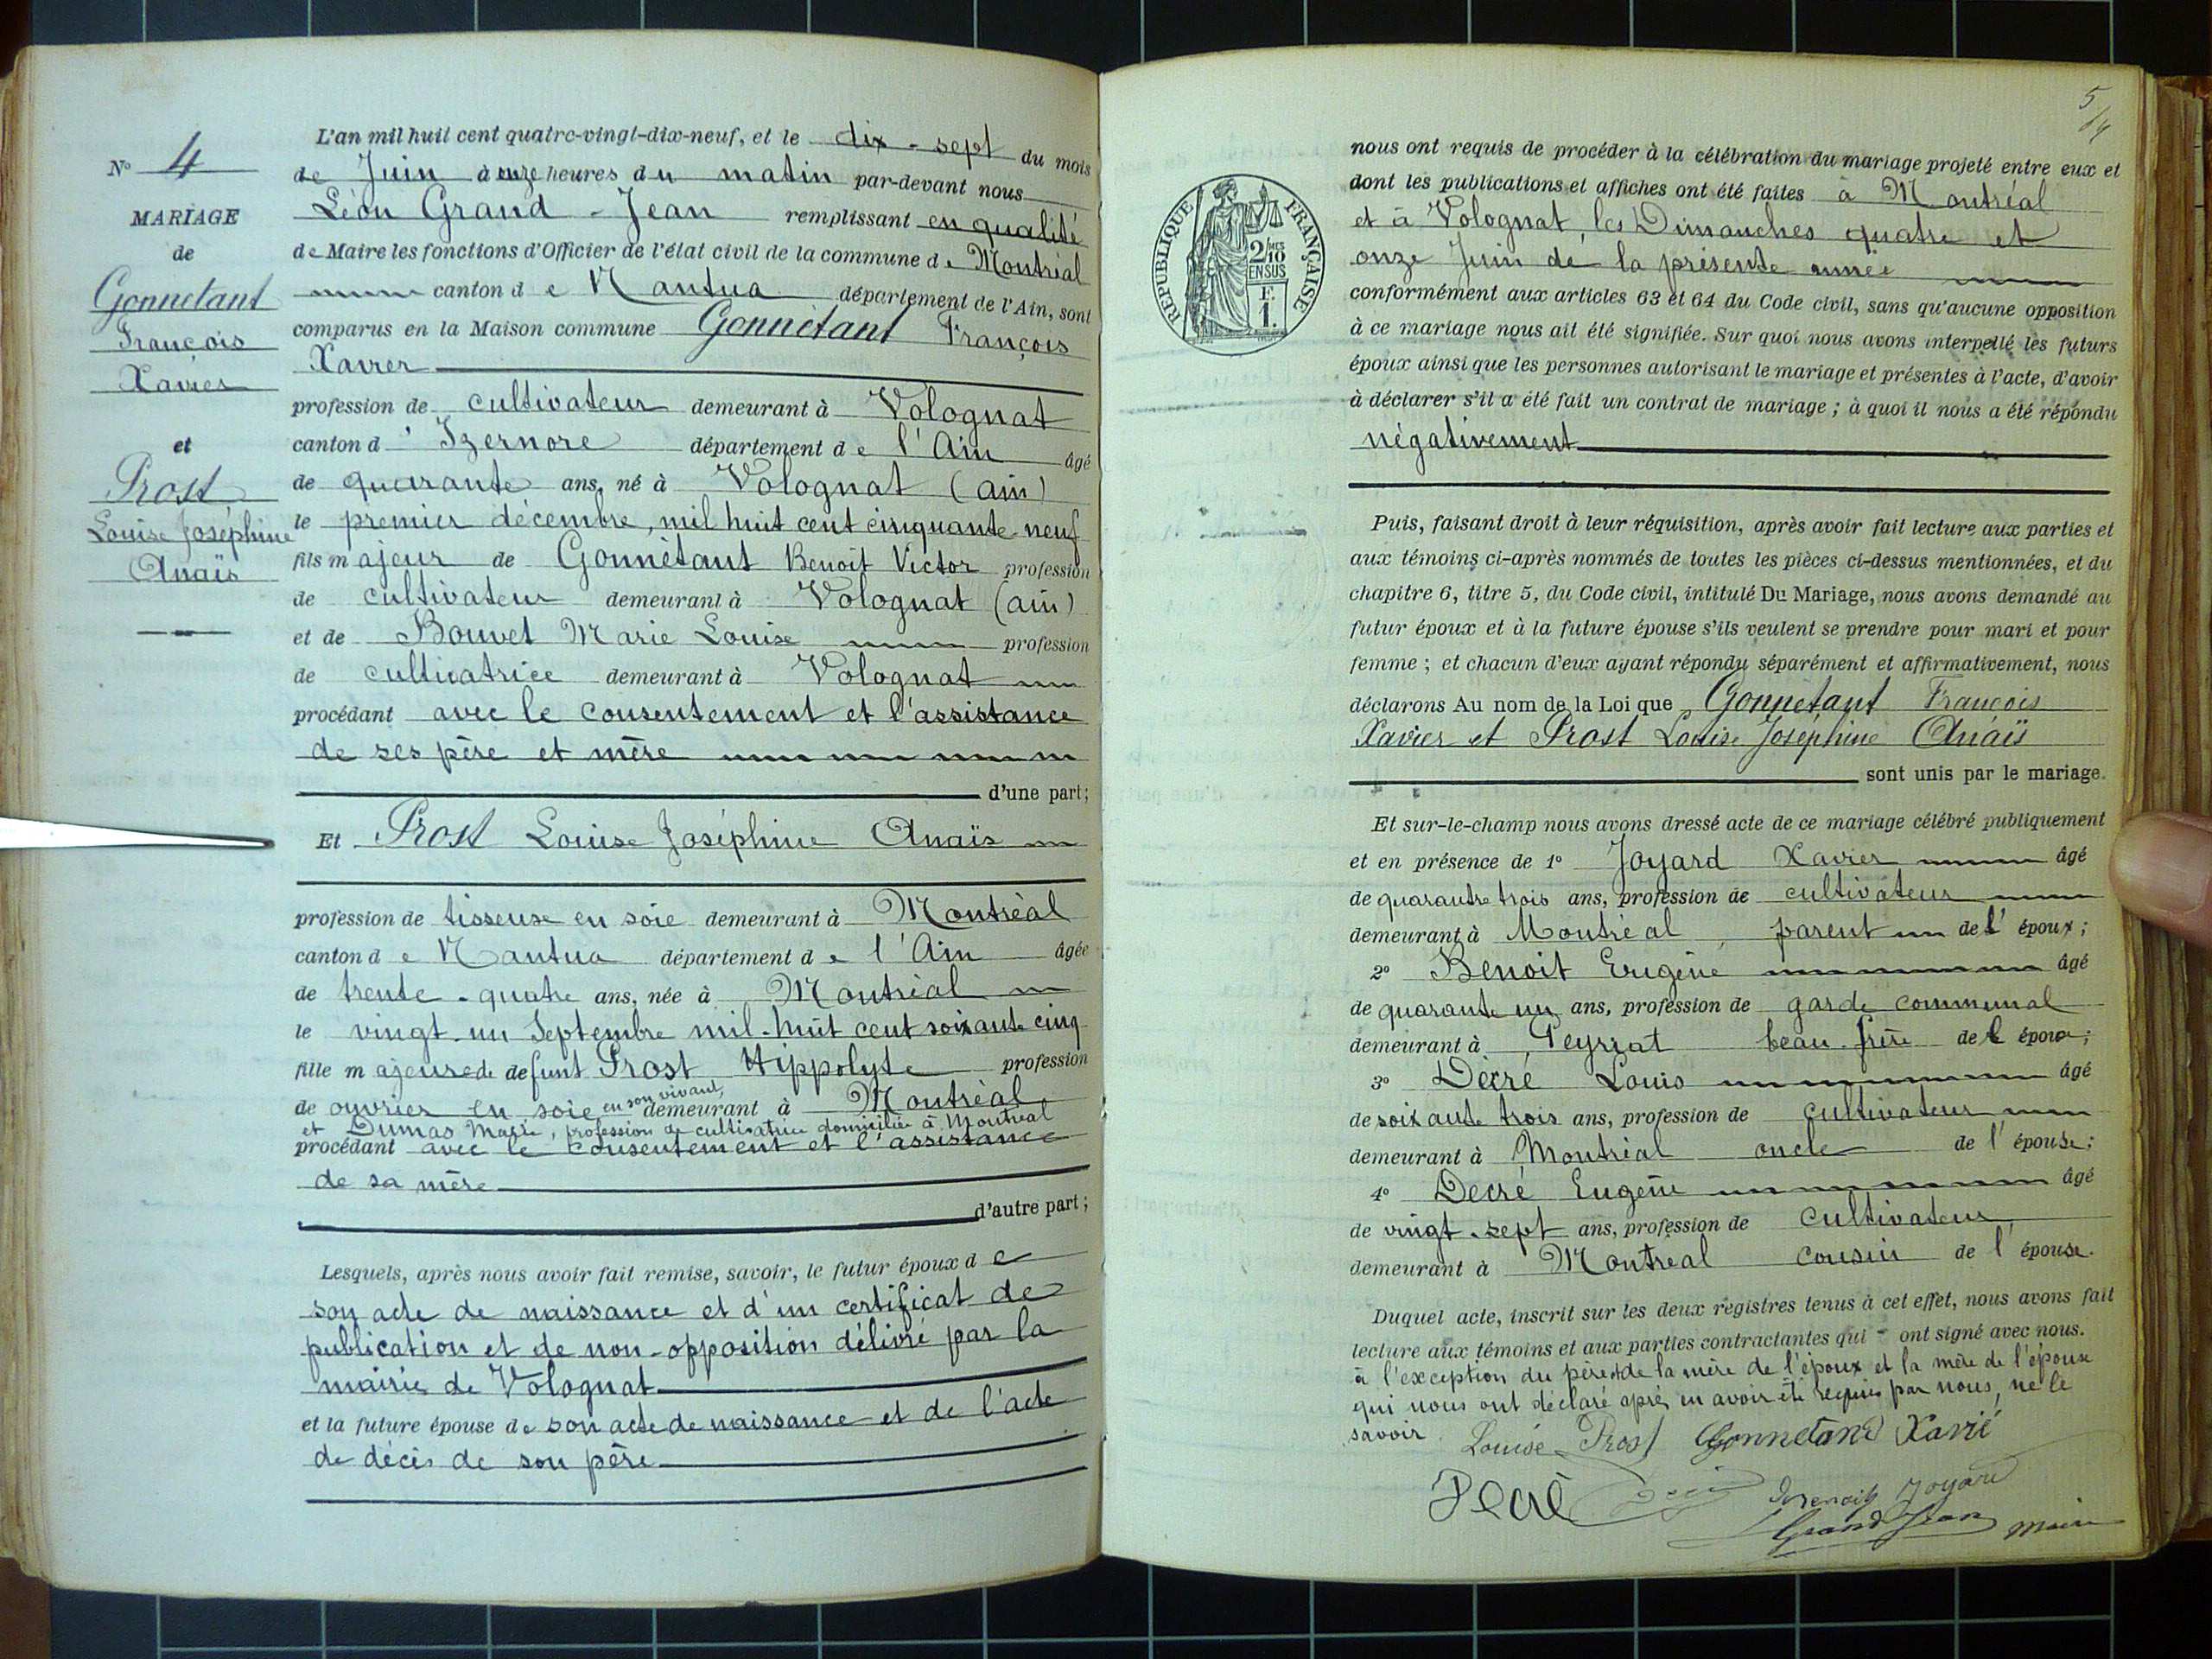 N° 4
MARIAGE
de
Gonnetant
François
Xavier
et
Prost
Louise Joséphine
Anaïs
L'an mil huit cent quatre-vingt-dix-neuf, et le dix-sept du mois
de Juin à onze heures du matin par-devant nous
Léon Grand-Jean remplissant en qualité
de Maire les fonctions d'Officier de l'état civil de la commune de Montréal
canton de Nantua département de l'Ain, sont
comparus en la Maison commune Gonnétant François
Xavier
profession de cultivateur demeurant à Volognat
canton d'Izernore département de l'Ain âgé
de quarante ans, né à Volognat (ain)
le premier décembre, mil huit cent cinquante-neuf
fils majeur de Gonnètant Benoit Victor profession
de cultivateur demeurant à Volognat (ain)
et de Bouvet Marie Louise profession
de cultivatrice demeurant à Volognat
procédant avec le consentement et l'assistance
de ses père et mère
d'une part;
Et Prost Louise Joséphine Anaïs
profession de tisseuse en soie demeurant à Montréal
canton de Nantua département de l'Ain âgée
de trente-quatre ans, née à Montréal
le vingt-un Septembre mil-huit cent soixante cinq
fille majeure de defunt Prost Hippolyte profession
de ouvrier en soie en son vivant, demeurant à Montréal
et Dumas Marie, profession de cultivatrice domiciliée à Montréal
procédant avec le consentement et l'assistance
de sa mère
d'autre part;
Lesquels, après nous avoir fait remise, savoir, le futur époux de
son acte de naissance et d'un certificat de
publication et de non-opposition délivré par la
mairie de Volognat
et la future épouse de son acte de naissance et de l'acte
de décès de son père
5
RÉPUBLIQUE FRANÇAISE
2/10
EN SUS
F.
1.
nous ont requis de procéder à la célébration du mariage projeté entre eux et
dont les publications et affiches ont été faites à Montréal
et à Volognat, les Dimanches quatre et
onze Juin de la présente année
conformément aux articles 63 et 64 du Code civil, sans qu'aucune opposition
à ce mariage nous ait été signifiée. Sur quoi nous avons interpellé les futurs
époux ainsi que les personnes autorisant le mariage et présentes à l'acte, d'avoir
à déclarer s'il a été fait un contrat de mariage; à quoi il nous a été répondu
négativement
Puis, faisant droit à leur réquisition, après avoir fait lecture aux parties et
aux témoins ci-après nommés de toutes les pièces ci-dessus mentionnées, et du
chapitre 6, titre 5, du Code civil, intitulé Du Mariage, nous avons demandé au
futur époux et à la future épouse s'ils veulent se prendre pour mari et pour
femme; et chacun d'eux ayant répondu séparément et affirmativement, nous
déclarons Au nom de la Loi que Gonnetant François
Xavier et Prost Louise Joséphine Anaïs
sont unis par le mariage.
Et sur-le-champ nous avons dressé acte de ce mariage célébré publiquement
et en présence de 1° Joyard Xavier âgé
de quarante trois ans, profession de cultivateur
demeurant à Montréal, parent de l'époux;
2° Benoit Eugène âgé
de quarante un ans, profession de garde communal
demeurant à Peyriat beau-frère de l'époux;
3° Decré Louis âgé
de soixante trois ans, profession de cultivateur
demeurant à Montréal oncle de l'épouse;
4° Decré Eugène âgé
de vingt-sept ans, profession de cultivateur,
demeurant à Montréal cousin de l'épouse.
Duquel acte, inscrit sur les deux registres tenus à cet effet, nous avons fait
lecture aux témoins et aux parties contractantes qui ont signé avec nous.
à l'exception du père et de la mère de l'époux et la mère de l'épouse
qui nous ont déclaré après en avoir été requis par nous, ne le
savoir
Louise Prost Gonnetant Xavié
Decré Benoit Joyard
Grand Jean Maire